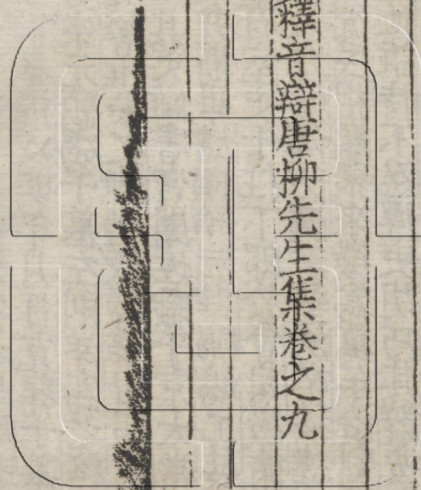 釋音辯唐柳先生集卷之九